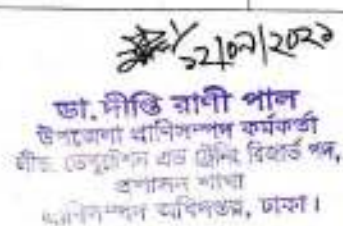 ১২/০৭/২০২১
ডা. দীপ্তি রাণী পাল
উপজেলা প্রাণিসম্পদ কর্মকর্তা
লীভ, ডেপুটেশন এন্ড ট্রেনিং রিজার্ভ পদ,
প্রশাসন শাখা
প্রাণিসম্পদ অধিদপ্তর, ঢাকা।